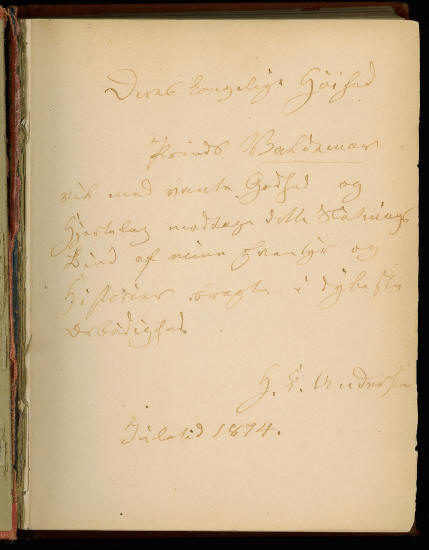 Deres kongelige Høihed
Prinds Valdemar
vil med vante Godhed og
Hjertelag modtage dette Slutnings
Bind af mine Eventyr og
Historier bragte i dybeste
Ærbødighed
H. C. Andersen
Juletid 1874.